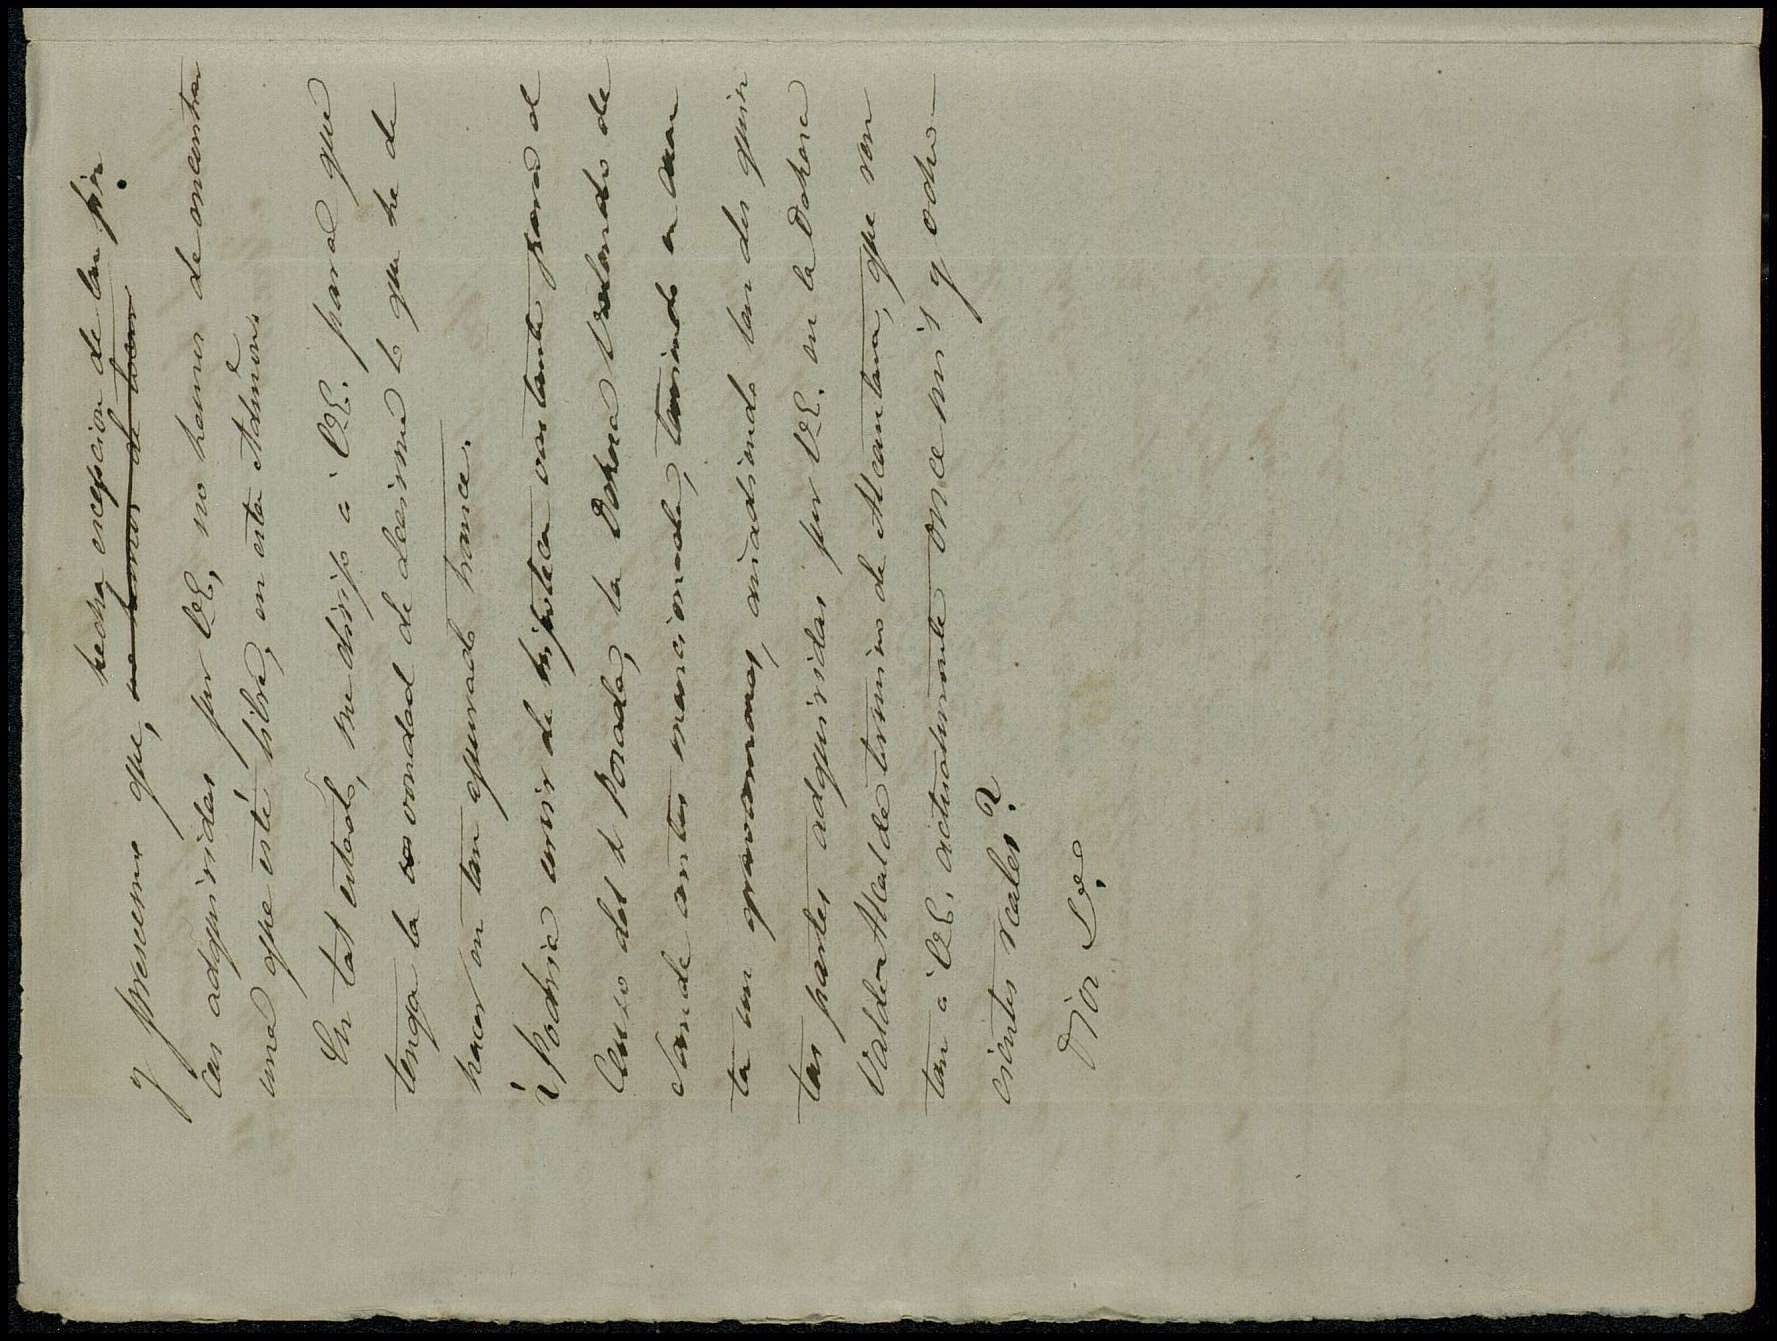 hecha excepcion de las fin
y presumo que, no hemos de tener
cas adquiridas por V.E., no hemos de encontrar
una que esté libre, en esta Admon.
En tal estado, me dirijo a V.E. para que
tenga la vondad de decirme lo que he de
hacer en tan apurado trance.
¿Podria servir de hipoteca vastante para el
Caso del
Posada, la Dehesa
de
Sande antes mencionada, teniendo en cuen
ta sus gravamenes, añadiendo las dos quin
tas partes adquiridas por V.E. en la Dehesa
Valdelaalcalde termino de Alcantara, que ren
tan a V.E. actualmente once mil y ocho
cientos reales?
Dios